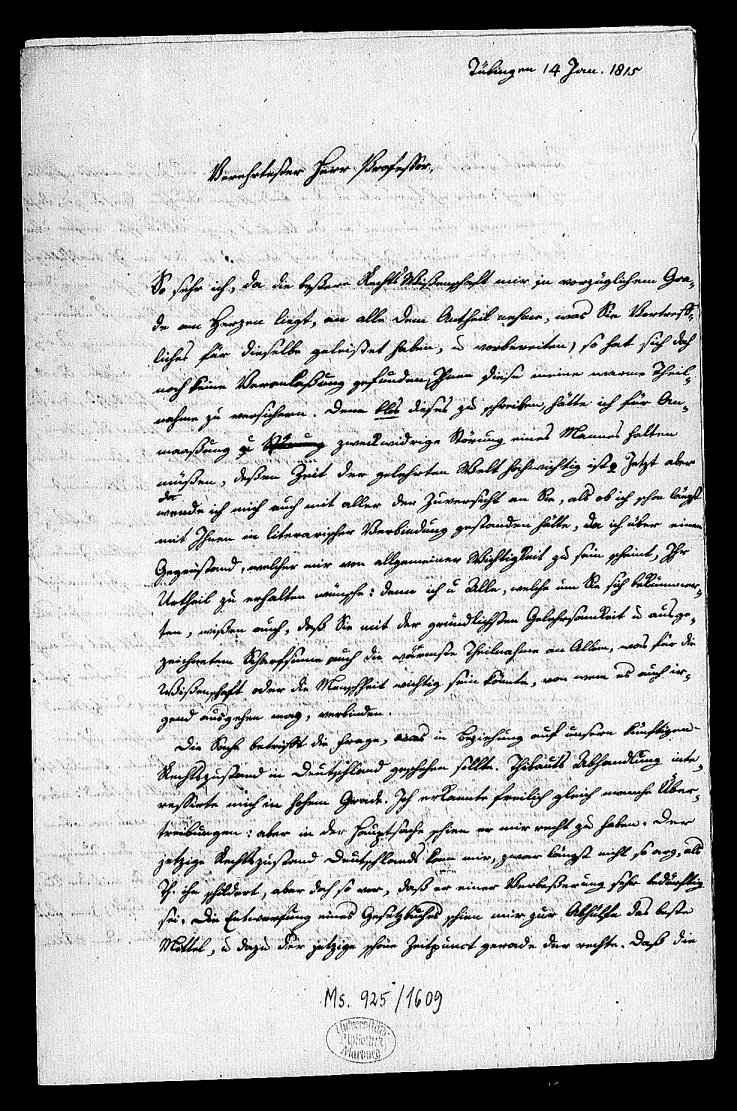 Tübingen 14 Jan. 1815
Verehrtester Herr Professor,
So sehr ich, da die bessere Rechtswissenschaft mir in vorzüglichem Gra-
de am Herzen liegt, an alle dem Antheil nehme, was Sie Vortreff-
liches für dieselbe geleistet haben, u vorbereiten, so hat sich doch
noch keine Veranlaßung gefunden, Ihnen diese meine warme Theil-
nahme zu versichern. Denn blos dieses zu schreiben, hätte ich für An-
maaßung u zweckwidrige Störung eines Mannes halten
müßen, deßen Zeit der gelehrten Welt hochwichtig ist. Jetzt aber
wende ich mich auch mit aller der Zuversicht an Sie, als ob ich schon längst
mit Ihnen in literarischer Verbindung gestanden hätte, da ich über einen
Gegenstand, welcher mir von allgemeiner Wichtigkeit zu sein scheint, Ihr
Urtheil zu erhalten wünsche: denn ich u Alle, welche um Sie sich bekümmer-
ten, wißen auch, daß Sie mit der gründlichsten Gelehrsamkeit u ausge-
zeichnetem Scharfsinne auch die wärmste Theilnahme an Allem, was für die
Wißenschaft oder die Menschheit wichtig sein könte, von wem es auch ir-
gend ausgehen mag, verbinden.
Die Sache betrifft die Frage, was in Beziehung auf unsern künftigen
Rechtszustand in Deutschland geschehen sollte. Thibauts Abhandlung inte-
ressirte mich in hohem Grade. Ich erkannte freilich gleich manche Über-
treibungen: aber in der Hauptsache schien er mir recht zu haben. Der
jetzige Rechtszustand Deutschlands kam mir, zwar längst nicht so arg, als
Th. ihn schildert, aber doch so vor, daß er einer Verbeßerung sehr bedürftig
sei. Die Entwerfung eines Gesetzbuches schien mir zur Abhülfe das beste
Mittel, u dazu der jetzige schöne Zeitpunct gerade der rechte. Daß die
Ms. 925/1609
Universitäts-
Bibliothek
Marburg